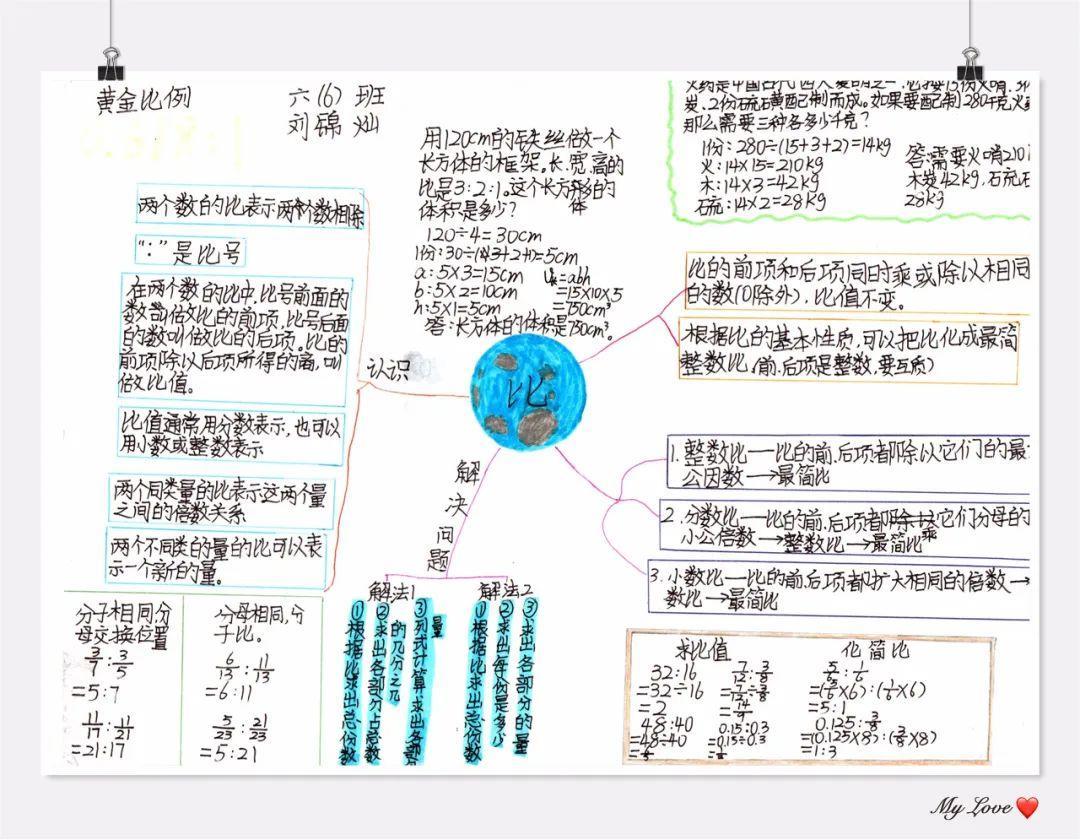 黄金比例
六(6)班
刘锦灿
1:0.618
两个数的比表示两个数相除
“:”是比号
在两个数的比中,比号前面的
数叫做比的前项,比号后面
的数叫做比的后项。比的
前项除以后项所得的商,叫
做比值。
比值通常用分数表示,也可以
用小数或整数表示
两个同类量的比表示这两个量
之间的倍数关系
两个不同类的量的比可以表
示一个新的量。
认识
用120cm的铁丝做一个
长方体的框架。长、宽、高的
比是3:2:1。这个长方体的
体积是多少?
120÷4=30cm
1份:30÷(3+2+1)=5cm
a:5×3=15cm
b:5×2=10cm
h:5×1=5cm
V长=abh
=15×10×5
=750cm³
答:长方体的体积是750cm³。
火药是中国古代四大发明之一,它
炭、2份硫磺配制而成。如果要配制280千克火
那么需要三种各多少千克?
1份:280÷(15+3+2)=14kg
火:14×15=210kg
木:14×3=42kg
石硫:14×2=28kg
答:需要火硝210
木炭42kg,石硫
28kg
比的前项和后项同时乘或除以相同
的数(0除外),比值不变。
根据比的基本性质,可以把比化成最简
整数比。(前、后项是整数,要互质)
比
1.整数比—比的前、后项都除以它们的最
公因数→最简比
2.分数比—比的前、后项都乘它们分母的
小公倍数→整数比→最简比
3.小数比—比的前、后项都扩大相同的倍数→
数比→最简比
解决问题
解法1
①根据比求出总份数
②求出各部分占总数
的几分之几
③列式计算求出各部
量
解法2
①根据比求出总份数
②求出每份是多少
③求出各部分的量
分子相同,分
母交换位置
3/7:3/5
=5:7
11/17:11/21
=21:17
分母相同,分
子比。
6/13:11/13
=6:11
5/23:21/23
=5:21
求比值
32:16
=32÷16
=2
48:40
=48÷40
7/12:3/8
=7/12÷3/8
=14/9
0.15:0.3
=0.15÷0.3
化简比
5/6:1/6
=(5/6×6):(1/6×6)
=5:1
0.125:3/8
=(0.125×8):(3/8×8)
=1:3
My Love